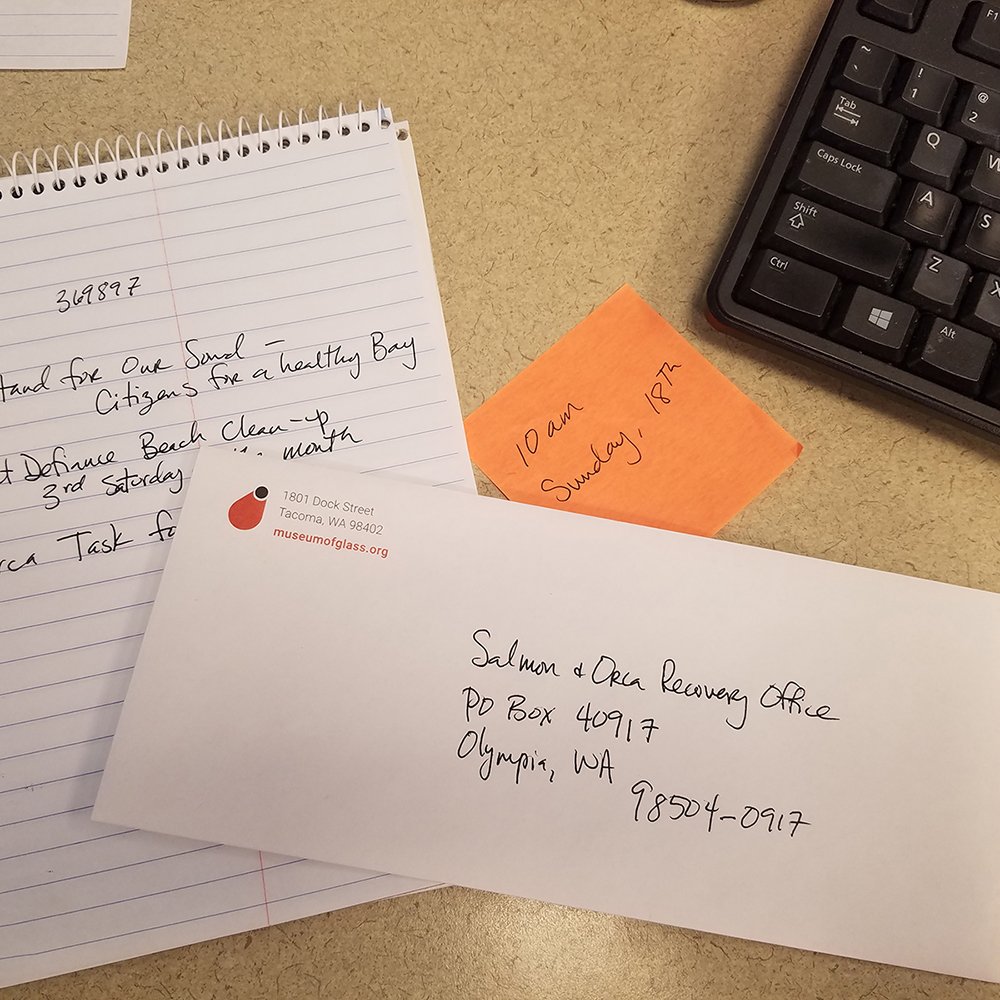 369897
for Our Sound –
Citizens for a healthy Bay
Defiance Beach Clean-up
3rd Saturday month
Task
10 am
Sunday, 18th
1801 Dock Street
Tacoma, WA 98402
museumofglass.org
Salmon & Orca Recovery Office
PO Box 40917
Olympia, WA
98504-0917
~
`
!
1
@
2
F1
Tab
Q
W
Caps Lock
A
S
Shift
Z
X
Ctrl
Alt